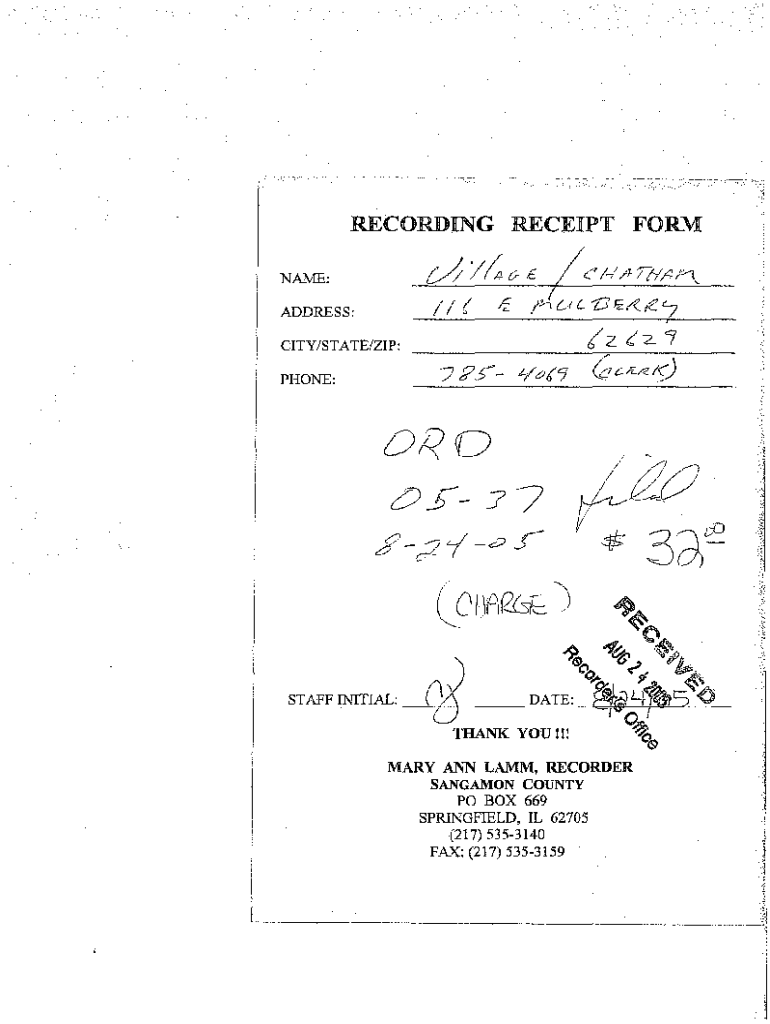 RECORDING RECEIPT FORM
NAME: Village / CHATHAM
ADDRESS: 116 E MULBERRY
CITY/STATE/ZIP: 62629
PHONE: 785-4069 (CLERK)
ORD
05-37 filed
8-24-05 $ 32.00
(CHARGE)
RECEIVED
AUG 24 2005
Recorder's Office
STAFF INITIAL: DATE: 8/24/05
THANK YOU !!!
MARY ANN LAMM, RECORDER
SANGAMON COUNTY
PO BOX 669
SPRINGFIELD, IL 62705
(217) 535-3140
FAX: (217) 535-3159